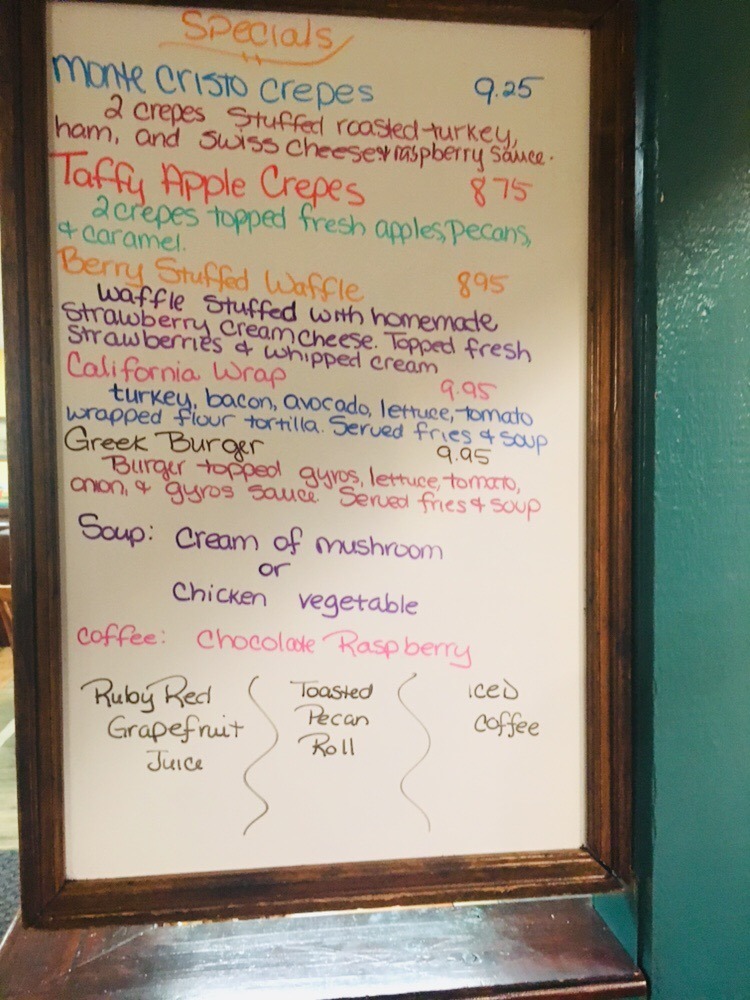 Specials
Monte Cristo Crepes 9.25
2 crepes stuffed roasted turkey,
ham, and swiss cheese & raspberry sauce.
Taffy Apple Crepes 875
2 crepes topped fresh apples, pecans,
& caramel.
Berry Stuffed Waffle 895
waffle stuffed with homemade
strawberry cream cheese. Topped fresh
strawberries & whipped cream
California Wrap 9.95
turkey, bacon, avocado, lettuce, tomato
wrapped flour tortilla. Served fries & soup
Greek Burger 9.95
Burger topped gyros, lettuce, tomato,
onion, & gyros sauce. Served fries & soup
Soup: Cream of mushroom
or
Chicken vegetable
coffee: Chocolate Raspberry
Ruby Red
Grapefruit
Juice
Toasted
Pecan
Roll
Iced
Coffee